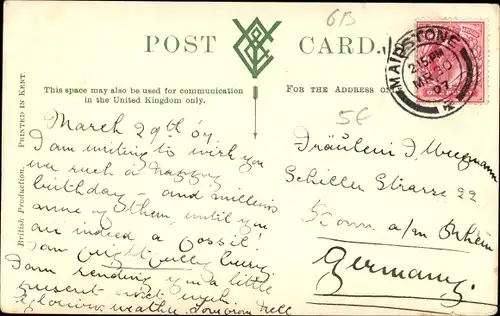 6B
POST CARD.
MAIDSTONE
2.15 PM
MR 30
07
K
This space may also be used for communication
in the United Kingdom only.
FOR THE ADDRESS ON
British Production. PRINTED IN KENT.
5€
March 29th 07
I am writing to wish you
ever such a happy
birthday - and millions
more of them, until you
are indeed a fossil!
I am frightfully busy.
I am sending you a little
present next week.
glorious weather. Love from Nell
Fräulein J. Wegmann
Schiller Strasse 22
Bonn a/m Rhein
Germany.